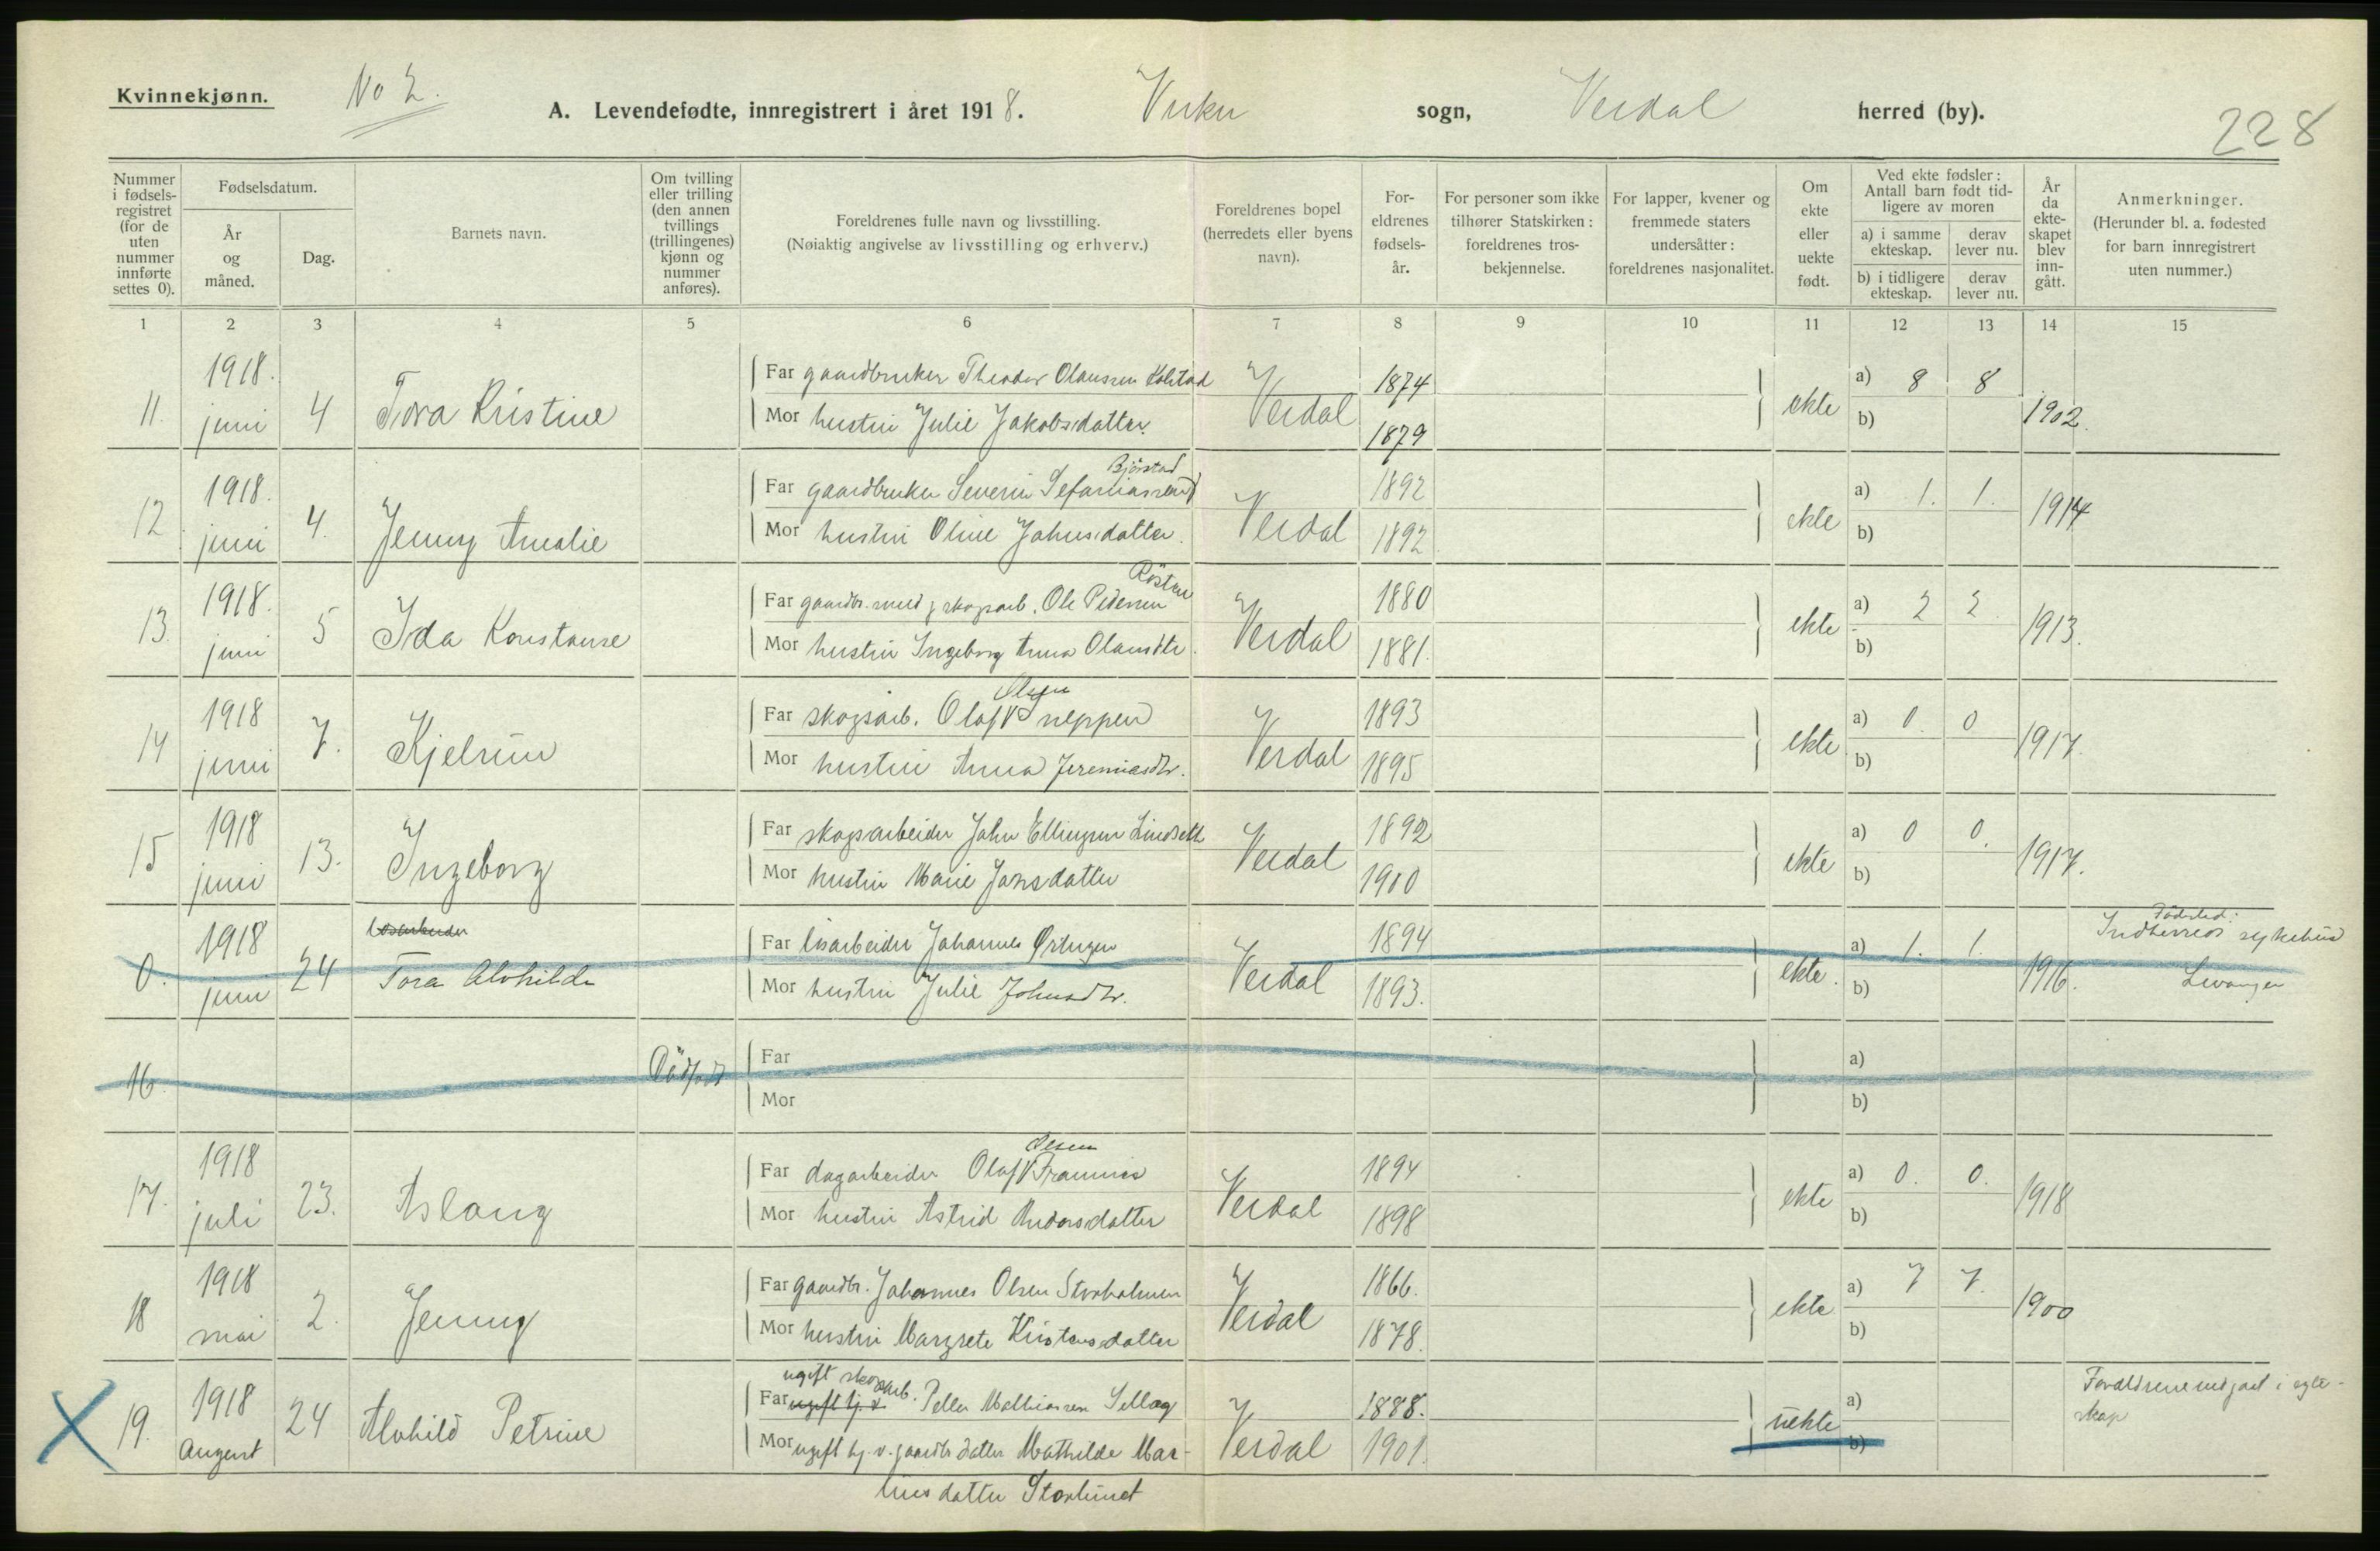 Kvinnekjønn.
No 2.
A. Levendefødte, innregistrert i året 1918.
Vuku sogn, Verdal herred (by).
228
Nummer i fødsels-registret (for de uten nummer innførte settes 0).
Fødselsdatum.
År og måned.
Dag.
Barnets navn.
Om tvilling eller trilling (den annen tvillings (trillingenes) kjønn og nummer anføres).
Foreldrenes fulle navn og livsstilling.
(Nøiaktig angivelse av livsstilling og erhverv.)
Foreldrenes bopel (herredets eller byens navn).
For-eldrenes fødsels-år.
For personer som ikke tilhører Statskirken: foreldrenes tros-bekjennelse.
For lapper, kvener og fremmede staters undersåtter: foreldrenes nasjonalitet.
Om ekte eller uekte født.
Ved ekte fødsler: Antall barn født tid-ligere av moren
a) i samme ekteskap.
derav lever nu.
b) i tidligere ekteskap.
derav lever nu.
År da ekte-skapet blev inn-gått.
Anmerkninger.
(Herunder bl. a. fødested for barn innregistrert uten nummer.)
1 2 3 4 5 6 7 8 9 10 11 12 13 14 15
11. 1918. juni 4 Tora Kristine
Far gaardbruker Theodor Olaussen Kolstad Verdal 1874 ekte a) 8 8 1902.
Mor hustru Julie Jakobsdatter. 1879 b)
12. 1918. juni 4. Jenny Amalie
Bjørstad
Far gaardbruker Severin Sefaniassen Verdal 1892 ekte a) 1. 1. 1914
Mor hustru Oline Johnsdatter. 1892. b)
13. 1918. juni 5 Ida Konstanse
Far gaardbr. med skogsarb. Ole Pedersen Verdal 1880 ekte a) 2 2 1913.
Mor hustru Ingeborg Anna Olausdtr. 1881. b)
14 1918 juni 7. Kjelrun
Olsen
Far skogsarb. Olaf Sneppen Verdal 1893 ekte a) 0. 0 1917.
Mor hustru Anna Jeremiasdtr. 1895 b)
15 1918 juni 13. Ingeborg
Far skogsarbeider John Ellingsen Lindseth Verdal 1892 ekte a) 0 0. 1917.
Mor hustru Marie Jonsdatter 1900 b)
0. 1918 juni 24 løsarbeider Tora Alvhilde
Far løsarbeider Johannes Ørtugen Verdal 1894 ekte. a) 1. 1. 1916. Fødested: Indherreds sykehus
Mor hustru Julie Johnsdtr. 1893. b) Levanger
16 Dödfødt
Far a)
Mor b)
17. 1918 juli 23. Aslaug
Olsen
Far dagarbeider Olaf Framnes Verdal 1894 ekte a) 0. 0. 1918
Mor hustru Astrid Andersdatter 1898 b)
18 1918 mai 2. Jenny
Far gaardbr. Johannes Olsen Storholmen Verdal 1866. ekte a) 7 7. 1900
Mor hustru Margrete Kristensdatter 1878. b)
19. 1918 August 24 Alvhild Petrine
ugift skogsarb.
Far ugift Petter Mathiassen Selläg Verdal 1888. uekte a) Foreldrene indgaat i egte-skap
Mor ugift hj. v. gaardbr datter Mathilde Mar- 1901. b)
tinsdatter Storlunet